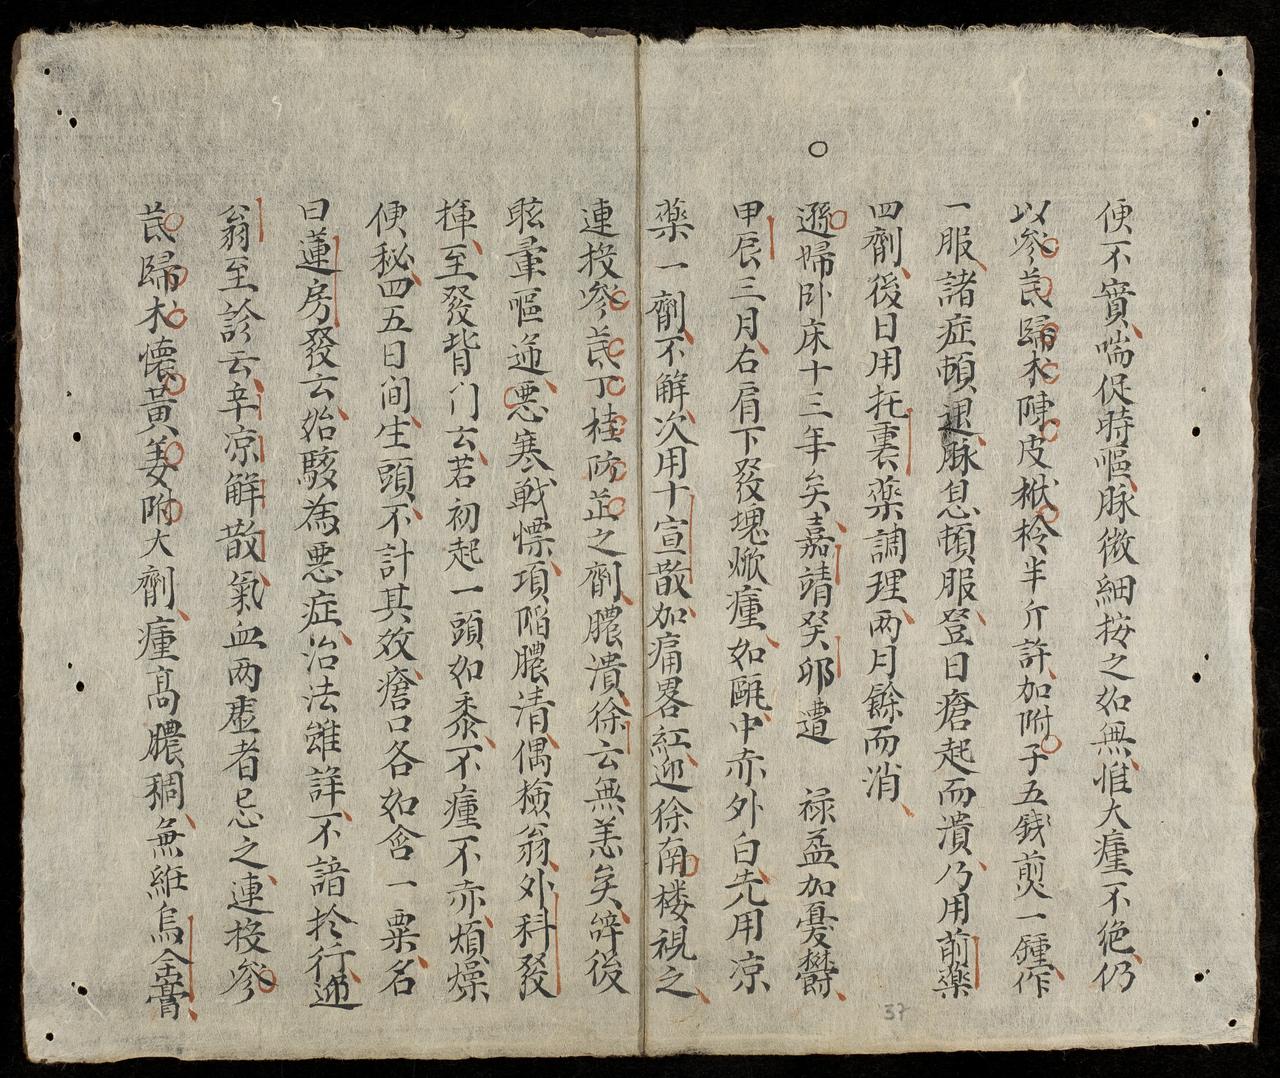 便不實喘促時嘔脉微細按之如無惟大瘇不绝仍
以參芪歸术陳皮栿柃半斤許加附子五錢煎一鍾作
一服諸症頓退脉息頓服登日瘡起而潰乃用前藥
四劑後日用托裏藥調理两月餘而消
遜婦卧床十三年矣嘉靖癸卯遭 禄益加憂欝
甲辰三月右肩下發塊焮瘇如甌中赤外白先用凉
藥一劑不解次用十宣散加痛畧紅迎徐南楼視之
連投參芪丁桂防芷之劑膿潰徐云無恙矣辝後
眩暈嘔逆惡寒戦慄項陷膿清偶撿翁外科發
揮至發背门云若初起一頭如黍不瘇不赤煩燥
便秘四五日间生頭不計其效瘡口各如含一粟名
曰蓮房發云始駭為惡症治法雖詳不諳扵行迎
翁至診云辛凉解散氣血两虛者忌之連投參
芪歸术懷黃姜附大劑瘇高膿稠無絍烏金膏
37